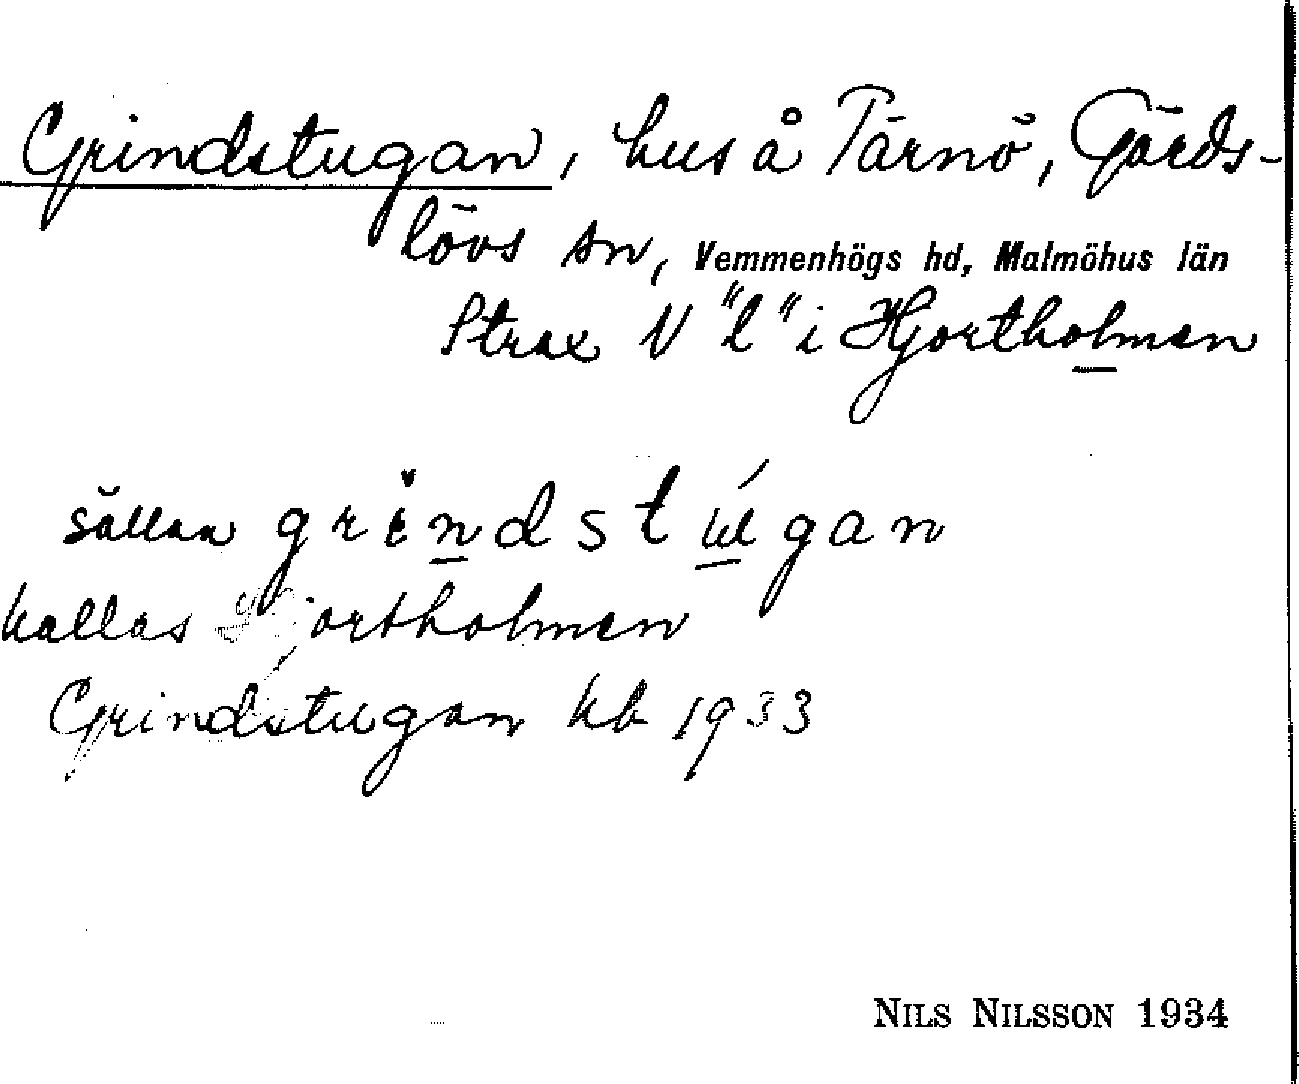 Grindstugan, hus å Tärnö, Gärds-
lövs sn, Vemmenhögs hd, Malmöhus län
Strax V "l" i Hjortholmen
sällan grindstúgan
kallas Hjortholmen
Grindstugan kb 1933
NILS NILSSON 1934